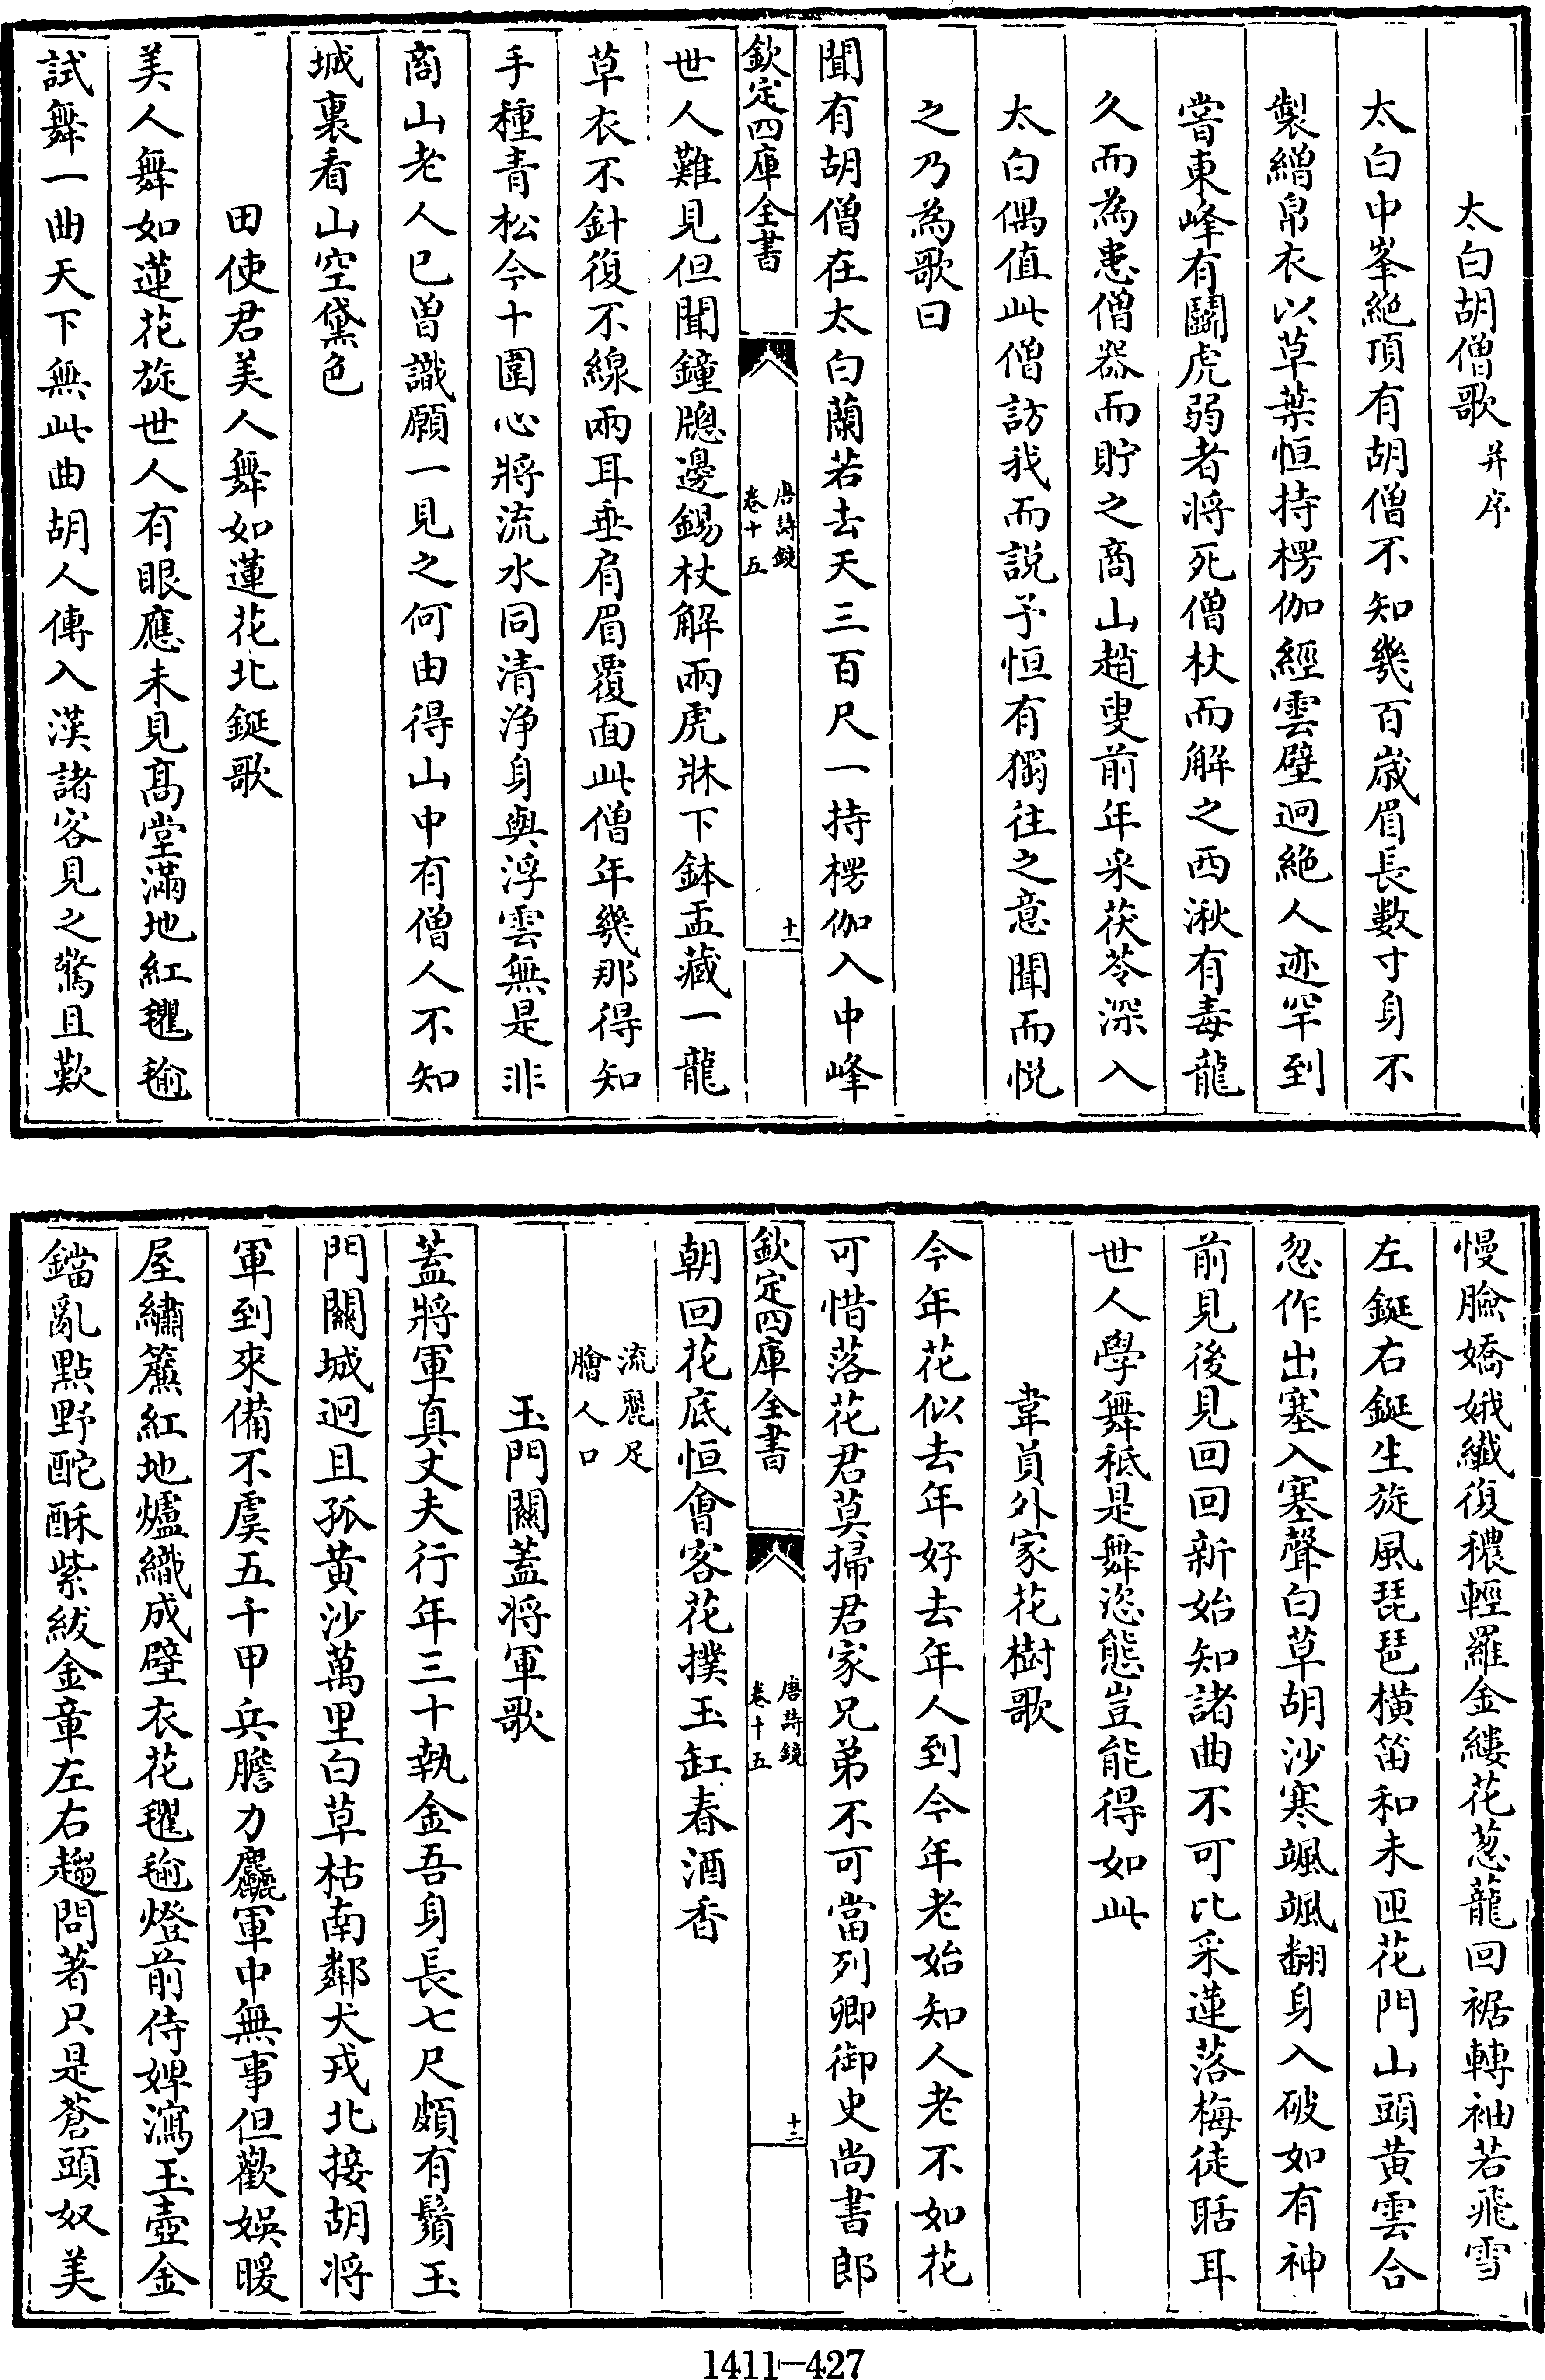 太白胡僧歌并序
太白中峯絶頂有胡僧不知幾百嵗眉長數寸身不
製繒帛衣以草葉恒持楞伽經雲壁迥絶人迹罕到
甞東峰有鬭虎弱者将死僧杖而解之西湫有毒龍
久而為患僧器而貯之商山趙叟前年采茯苓深入
太白偶值此僧訪我而説予恒有獨往之意聞而悦
之乃為歌曰
聞有胡僧在太白蘭若去天三百尺一持楞伽入中峰
欽定四庫全書
唐詩鏡
卷十五
十一
世人難見但聞鐘牕邊錫杖解兩虎牀下鉢盂藏一龍
草衣不針復不線兩耳垂肩眉覆面此僧年幾那得知
手種青松今十圍心將流水同清浄身與浮雲無是非
商山老人已曾識願一見之何由得山中有僧人不知
城裏看山空黛色
田使君美人舞如蓮花北鋋歌
美人舞如蓮花旋世人有眼應未見髙堂滿地紅氍毹
試舞一曲天下無此曲胡人傳入漢諸客見之驚且歎
慢臉嬌娥纎復穠輕羅金縷花葱蘢回裾轉袖若飛雪
左鋋右鋋生旋風琵琶橫笛和未匝花門山頭黄雲合
忽作出塞入塞聲白草胡沙寒颯颯翻身入破如有神
前見後見回回新始知諸曲不可比采蓮落梅徒聒耳
世人學舞秪是舞恣態豈能得如此
韋員外家花樹歌
今年花似去年好去年人到今年老始知人老不如花
可惜落花君莫掃君家兄弟不可當列卿御史尚書郎
欽定四庫全書
唐詩鏡
卷十五
十二
朝回花底恒會客花撲玉缸春酒香
流麗足
膾人口
玉門關蓋将軍歌
蓋將軍真丈夫行年三十執金吾身長七尺頗有鬚玉
門關城迥且孤黄沙萬里白草枯南鄰犬戎北接胡将
軍到來備不虞五千甲兵膽力麤軍中無事但歡娛暖
屋繡簾紅地爐織成壁衣花氍毹燈前侍婢瀉玉壺金
鐺亂點野酡酥紫紱金章左右趨問著只是蒼頭奴美
1411—427